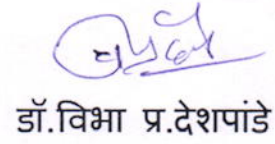 डॉ.विभा प्र.देशपांडे